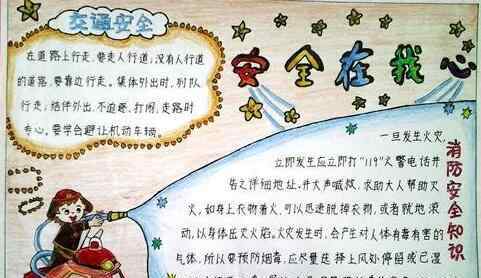 交通安全
在道路上行走，要走人行道；没有人行道
的道路，要靠边行走。集体外出时，列队
行走；结伴外出，不追逐、打闹，走路时
专心。要学会避让机动车辆。
安全在我心
消防安全知识
一旦发生火灾，
立即发生应立即打"119"火警电话并
告之详细地址，并大声喊救，求助大人帮助灭
火，如身上衣物着火，可以迅速脱掉衣物，或者就地滚
动，以身体压灭火焰。火灾发生时，会产生对人体有毒有害的
气体，所以要预防烟毒，应尽量选择上风处停留或已湿